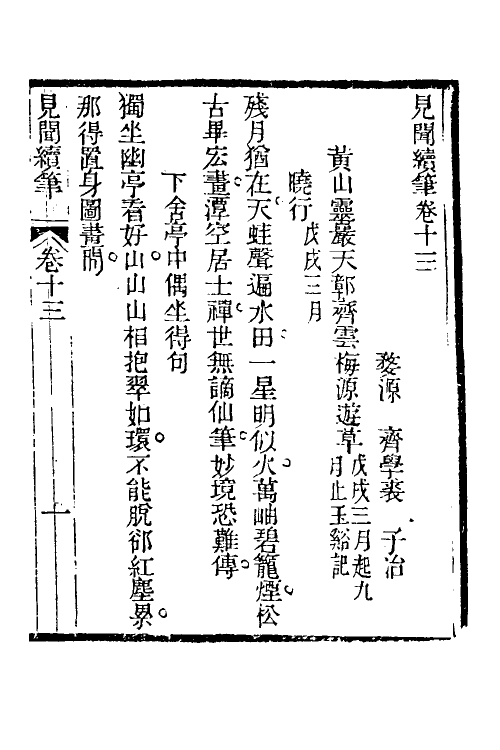 見聞續筆卷十三
婺源 齊學裘 子治
黃山靈巖天郭齊雲梅源遊草戊戌三月起九
月止玉谿記
曉行戊戌三月
殘月猶在天蛙聲遍水田一星明似火萬岫碧籠煙松
古畢宏畫潭空居士禪世無謫仙筆妙境恐難傳
下舍亭中偶坐得句
獨坐幽亭看好山山山相抱翠如環不能脫郤紅塵界
那得置身圖畫間
見聞續筆 卷十三 一